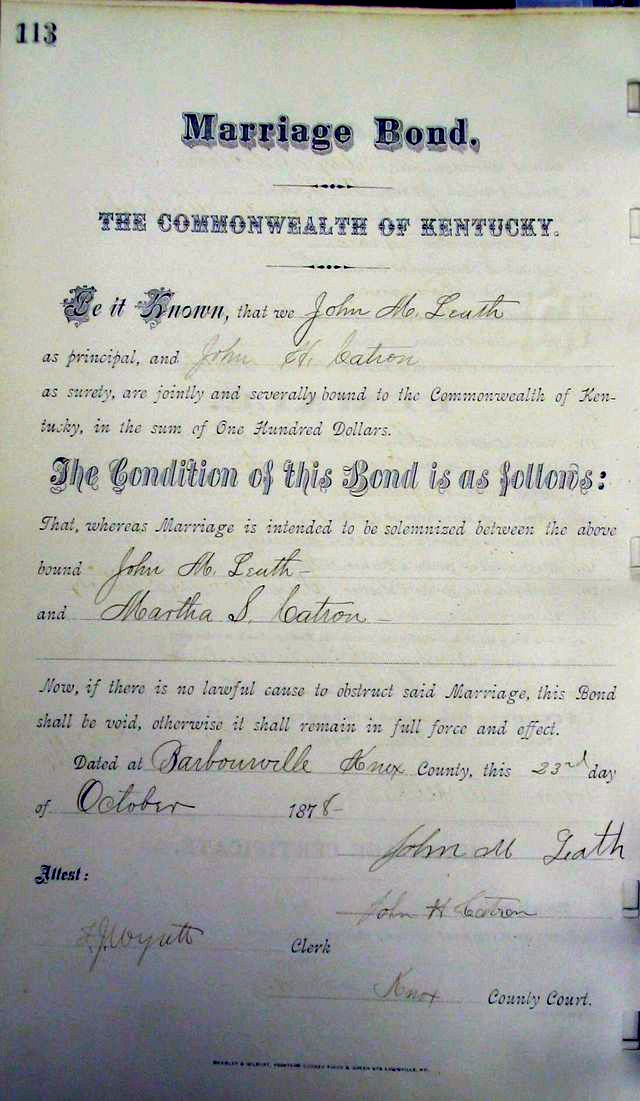 113
Marriage Bond.
THE COMMONWEALTH OF KENTUCKY.
Be it Known, that we John M. Leath
as principal, and John H. Catron
as surety, are jointly and severally bound to the Commonwealth of Ken-
tucky, in the sum of One Hundred Dollars.
The Condition of this Bond is as follows:
That, whereas Marriage is intended to be solemnized between the above
bound John M. Leath -
and Martha S. Catron -
Now, if there is no lawful cause to obstruct said Marriage, this Bond
shall be void, otherwise it shall remain in full force and effect.
Dated at Barbourville Knox County, this 23rd day
of October 1878-
John M Leath
Attest:
John H Catron
Wyatt Clerk
Knox County Court.